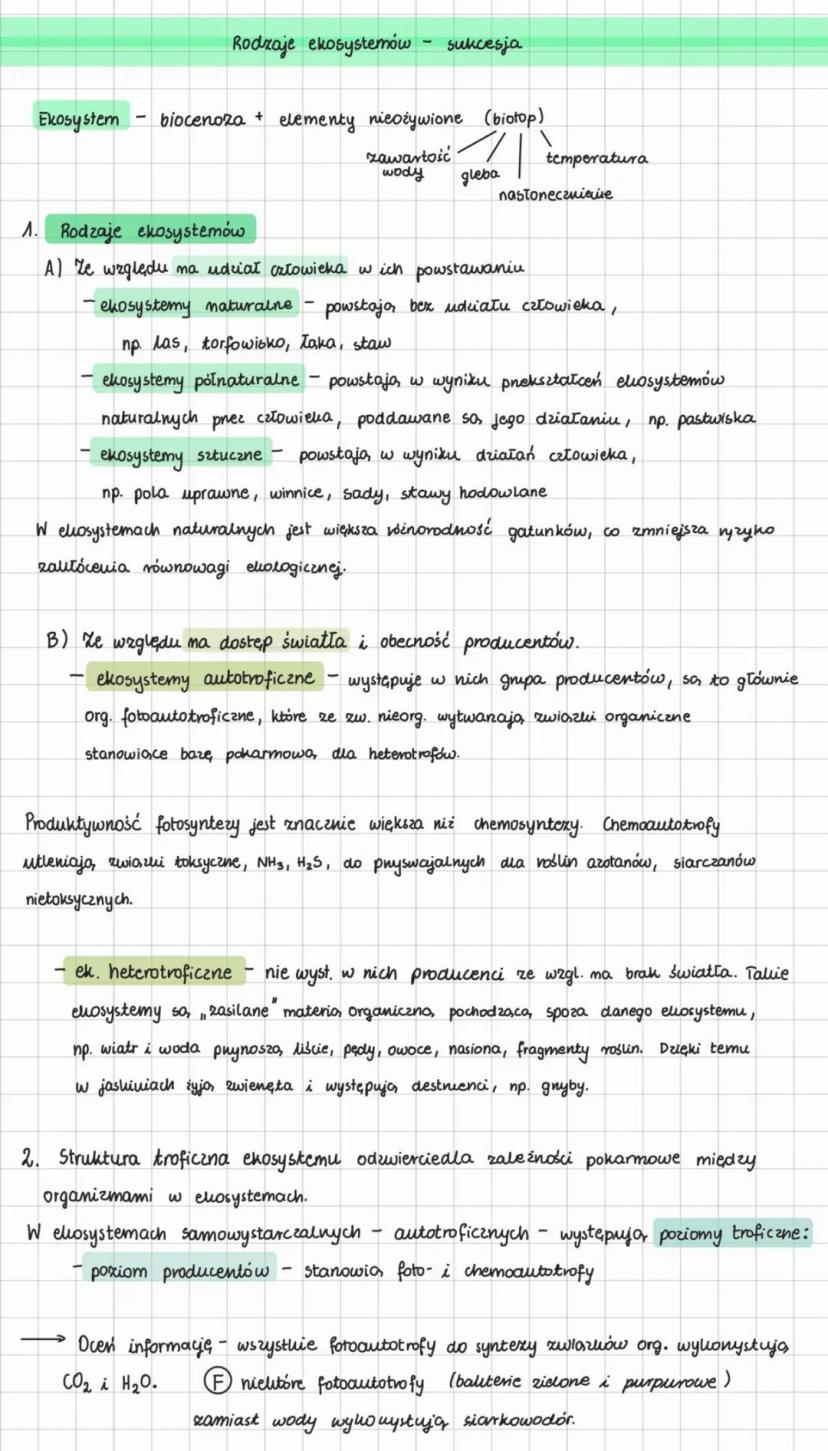 Rodzaje ekosystemów - sukcesja
Ekosystem - biocenoza + elementy nieożywione (biotop)
zawartość wody gleba nasłonecznienie temperatura
1. Rodzaje ekosystemów
A) Ze względu na udział człowieka w ich powstawaniu
- ekosystemy naturalne - powstają bez udziału człowieka,
np. las, torfowisko, łąka, staw
- ekosystemy półnaturalne - powstają w wyniku przekształceń ekosystemów
naturalnych przez człowieka, poddawane są jego działaniu, np. pastwiska
- ekosystemy sztuczne - powstają w wyniku działań człowieka,
np. pola uprawne, winnice, sady, stawy hodowlane
W ekosystemach naturalnych jest większa różnorodność gatunków, co zmniejsza ryzyko
zakłócenia równowagi ekologicznej.
B) Ze względu na dostęp światła i obecność producentów.
- ekosystemy autotroficzne - występuje w nich grupa producentów, są to głównie
org. fotoautotroficzne, które ze zw. nieorg. wytwarzają związki organiczne
stanowiące bazę pokarmową dla heterotrofów.
Produktywność fotosyntezy jest znacznie większa niż chemosyntezy. Chemoautotrofy
utleniają związki toksyczne, NH₃, H₂S, do przyswajalnych dla roślin azotanów, siarczanów
nietoksycznych.
- ek. heterotroficzne - nie wyst. w nich producenci ze wzgl. na brak światła. Takie
ekosystemy są „zasilane" materią organiczną pochodzącą spoza danego ekosystemu,
np. wiatr i woda przynoszą liście, pędy, owoce, nasiona, fragmenty roślin. Dzięki temu
w jaskiniach żyją zwierzęta i występują destruenci, np. grzyby.
2. Struktura troficzna ekosystemu odzwierciedla zależności pokarmowe między
organizmami w ekosystemach.
W ekosystemach samowystarczalnych - autotroficznych - występują poziomy troficzne:
- poziom producentów - stanowią foto- i chemoautotrofy
→ Oceń informację - wszystkie fotoautotrofy do syntezy związków org. wykorzystują
CO₂ i H₂O. F niektóre fotoautotrofy (bakterie zielone i purpurowe)
zamiast wody wykorzystują siarkowodór.